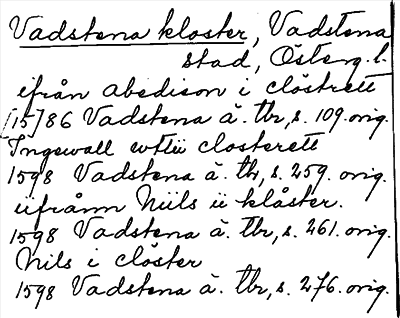 Vadstena kloster, Vadstena
stad, Österg. l.
ifrån abedison i clöstrett
[15]86 Vadstena ä. tbr, s. 109. orig.
Ingewall wttü closterett
1598 Vadstena ä. tbr, s. 259. orig.
üfrånn Niils ü klåster.
1598 Vadstena ä. tbr, s. 261. orig.
Nils i clöster
1598 Vadstena ä. tbr, s. 276. orig.